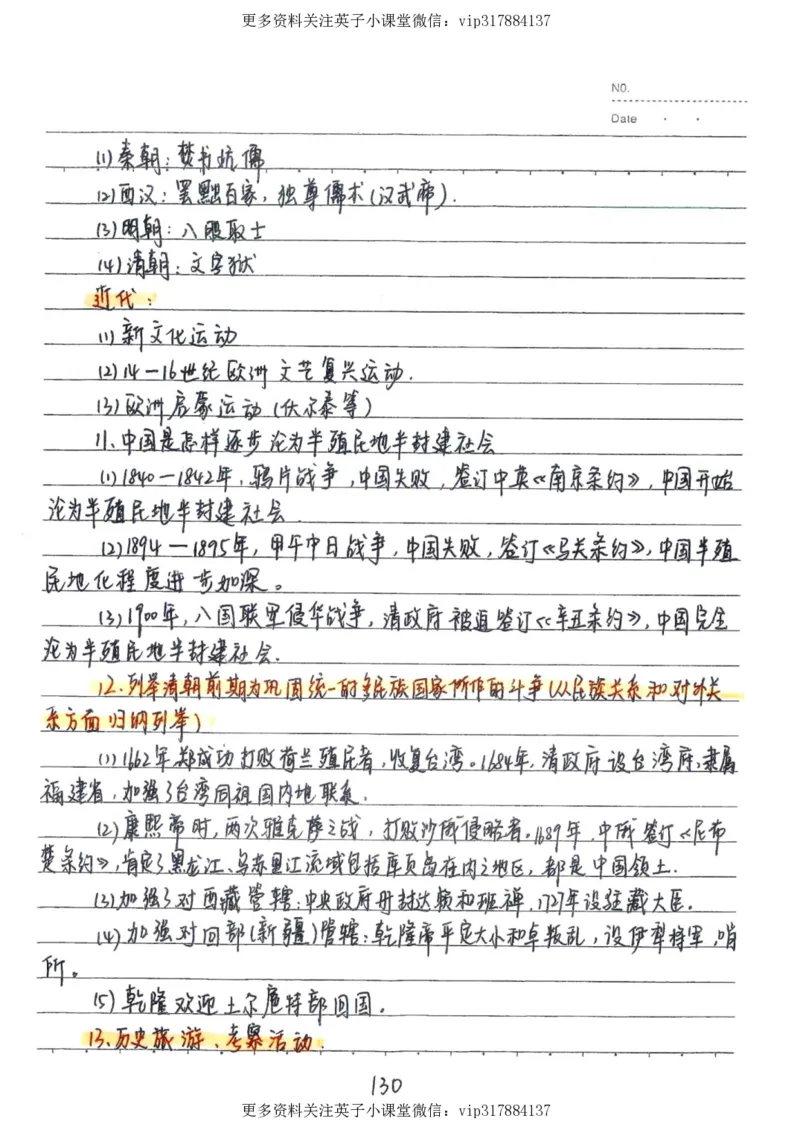 更多资料关注英子小课堂微信：vip317884137
NO.
Date
(1)秦朝：焚书坑儒
(2)西汉：罢黜百家，独尊儒术(汉武帝).
(3)明朝：八股取士
(4)清朝：文字狱
近代：
(1)新文化运动
(2)14－16世纪欧洲文艺复兴运动.
(3)欧洲启蒙运动(伏尔泰等)
11、中国是怎样逐步沦为半殖民地半封建社会
(1)1840－1842年，鸦片战争，中国失败，签订中英《南京条约》，中国开始
沦为半殖民地半封建社会.
(2)1894－1895年，甲午中日战争，中国失败，签订《马关条约》，中国半殖
民地化程度进一步加深。
(3)1900年，八国联军侵华战争，清政府被迫签订《辛丑条约》，中国完全
沦为半殖民地半封建社会.
12.列举清朝前期为巩固统一的多民族国家所作的斗争(从民族关系和对外关
系方面归纳列举)
(1)1662年郑成功打败荷兰殖民者，收复台湾。1684年，清政府设台湾府，隶属
福建省，加强了台湾同祖国内地联系.
(2)康熙帝时，两次雅克萨之战，打败沙俄侵略者。1689年，中俄签订《尼布
楚条约》，肯定了黑龙江、乌苏里江流域包括库页岛在内之地区，都是中国领土.
(3)加强了对西藏管辖：中央政府册封达赖和班禅，1727年设驻藏大臣。
(4)加强对回部(新疆)管辖：乾隆帝平定大小和卓叛乱，设伊犁将军，哨
所。
(5)乾隆欢迎土尔扈特部回国。
13、历史旅游、考察活动.
130
更多资料关注英子小课堂微信：vip317884137